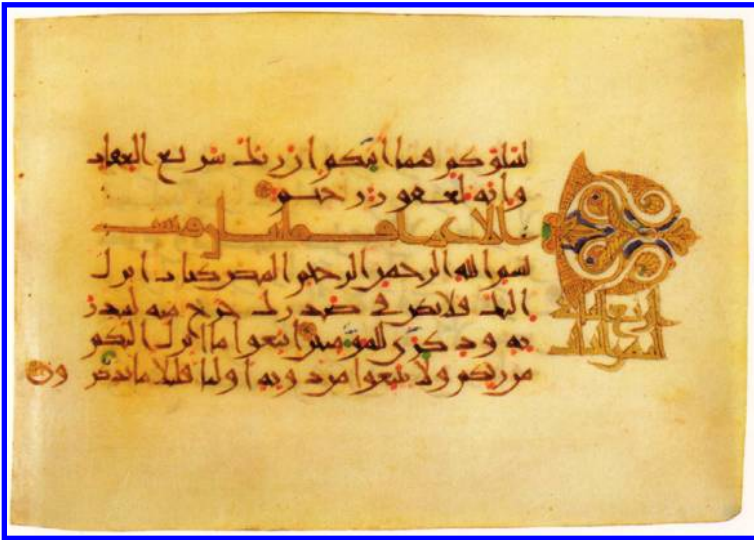 ليبلوكم فيما اتيكم ان ربك سريع العقاب
وانه لغفور رحيم
الاعراف
بسم الله الرحمن الرحيم المص كتاب انزل
اليك فلا يكن في صدرك حرج منه لتنذر
به وذكرى للمؤمنين اتبعوا ما انزل اليكم
من ربكم ولا تتبعوا من دونه اوليا قليلا ما تذكر ون